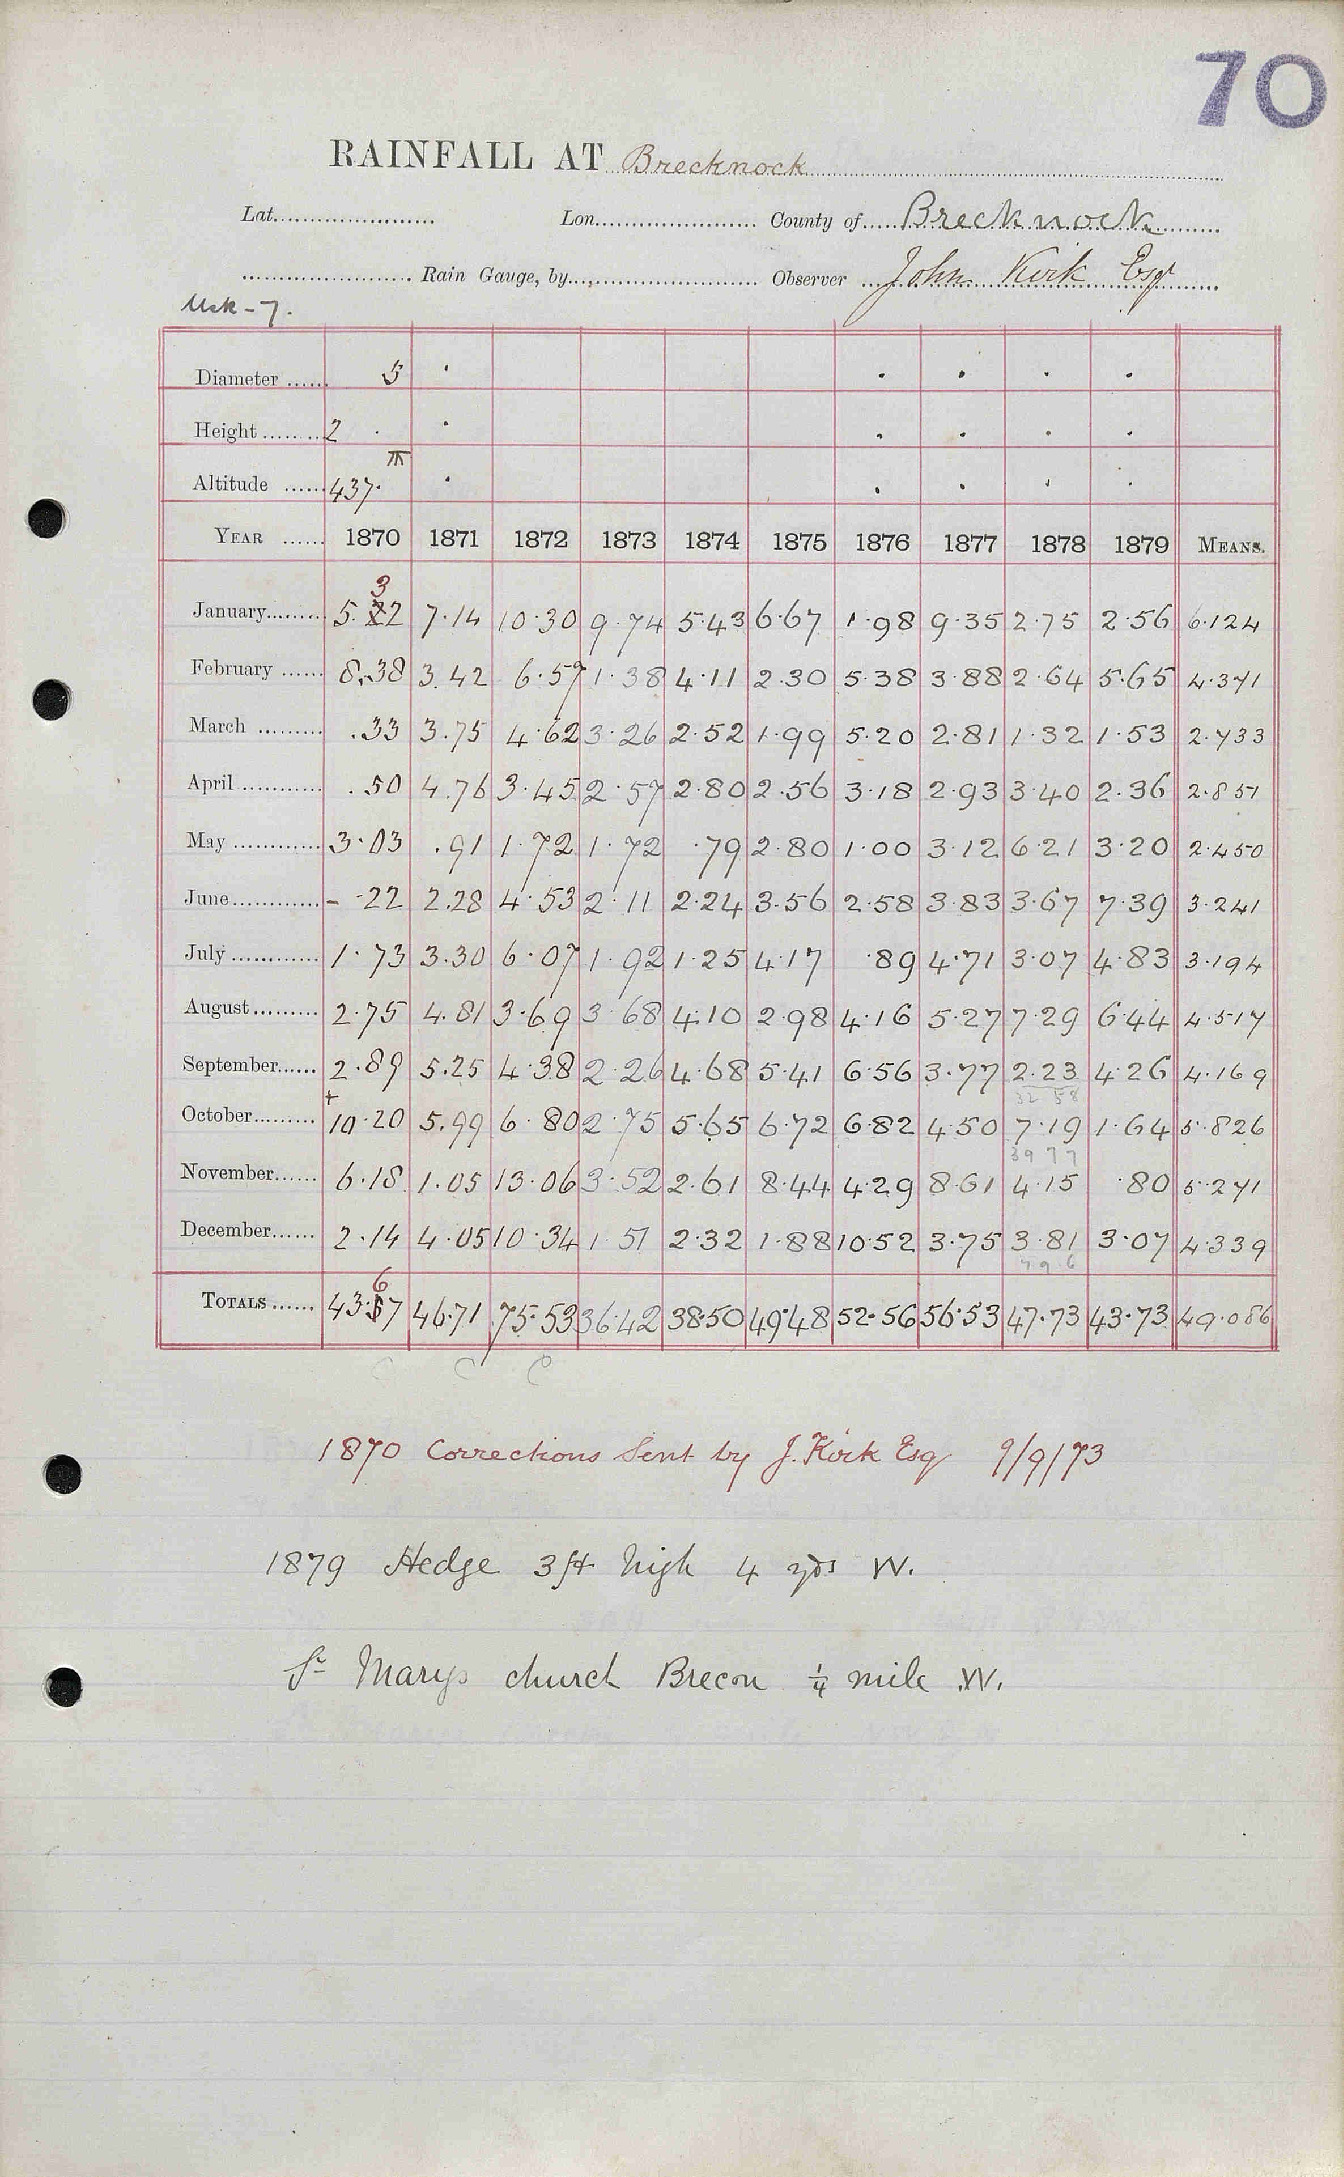 70
RAINFALL AT Brecknock
Lat. Lon. County of Brecknock
Rain Gauge, by Observer John Kirk Esqr
Usk - 7.
Diameter 5 . . . . .
Height 2 . . . . . .
Altitude 437 . . . . .
YEAR 1870 1871 1872 1873 1874 1875 1876 1877 1878 1879 MEANS.
3
January 5.22 7.14 10.30 9.74 5.43 6.67 1.98 9.35 2.75 2.56 6.124
February 8.38 3.42 6.57 1.38 4.11 2.30 5.38 3.88 2.64 5.65 4.371
March .33 3.75 4.62 3.26 2.52 1.99 5.20 2.81 1.32 1.53 2.733
April .50 4.76 3.45 2.57 2.80 2.56 3.18 2.93 3.40 2.36 2.851
May 3.03 .91 1.72 1.72 .79 2.80 1.00 3.12 6.21 3.20 2.450
June - .22 2.28 4.53 2.11 2.24 3.56 2.58 3.83 3.67 7.39 3.241
July 1.73 3.30 6.07 1.92 1.25 4.17 .89 4.71 3.07 4.83 3.194
August 2.75 4.81 3.69 3.68 4.10 2.98 4.16 5.27 7.29 6.44 4.517
September 2.89 5.25 4.38 2.26 4.68 5.41 6.56 3.77 2.23 4.26 4.169
32 58
October 10.20 5.99 6.80 2.75 5.65 6.72 6.82 4.50 7.19 1.64 5.826
39 77
November 6.18 1.05 13.06 3.52 2.61 8.44 4.29 8.61 4.15 .80 5.271
December 2.14 4.05 10.34 1.51 2.32 1.88 10.52 3.75 3.81 3.07 4.339
7 9 6
6
TOTALS 43.57 46.71 75.53 36.42 38.50 49.48 52.56 56.53 47.73 43.73 49.086
C C C
1870 Corrections Sent by J. Kirk Esq 9/9/73
1879 Hedge 3 ft high 4 yds W.
St Marys church Brecon 1/4 mile W.